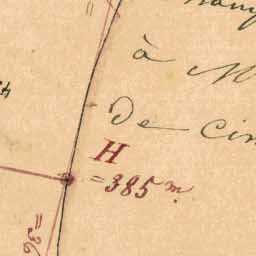 à M
de cin
H
=385 m.
=36